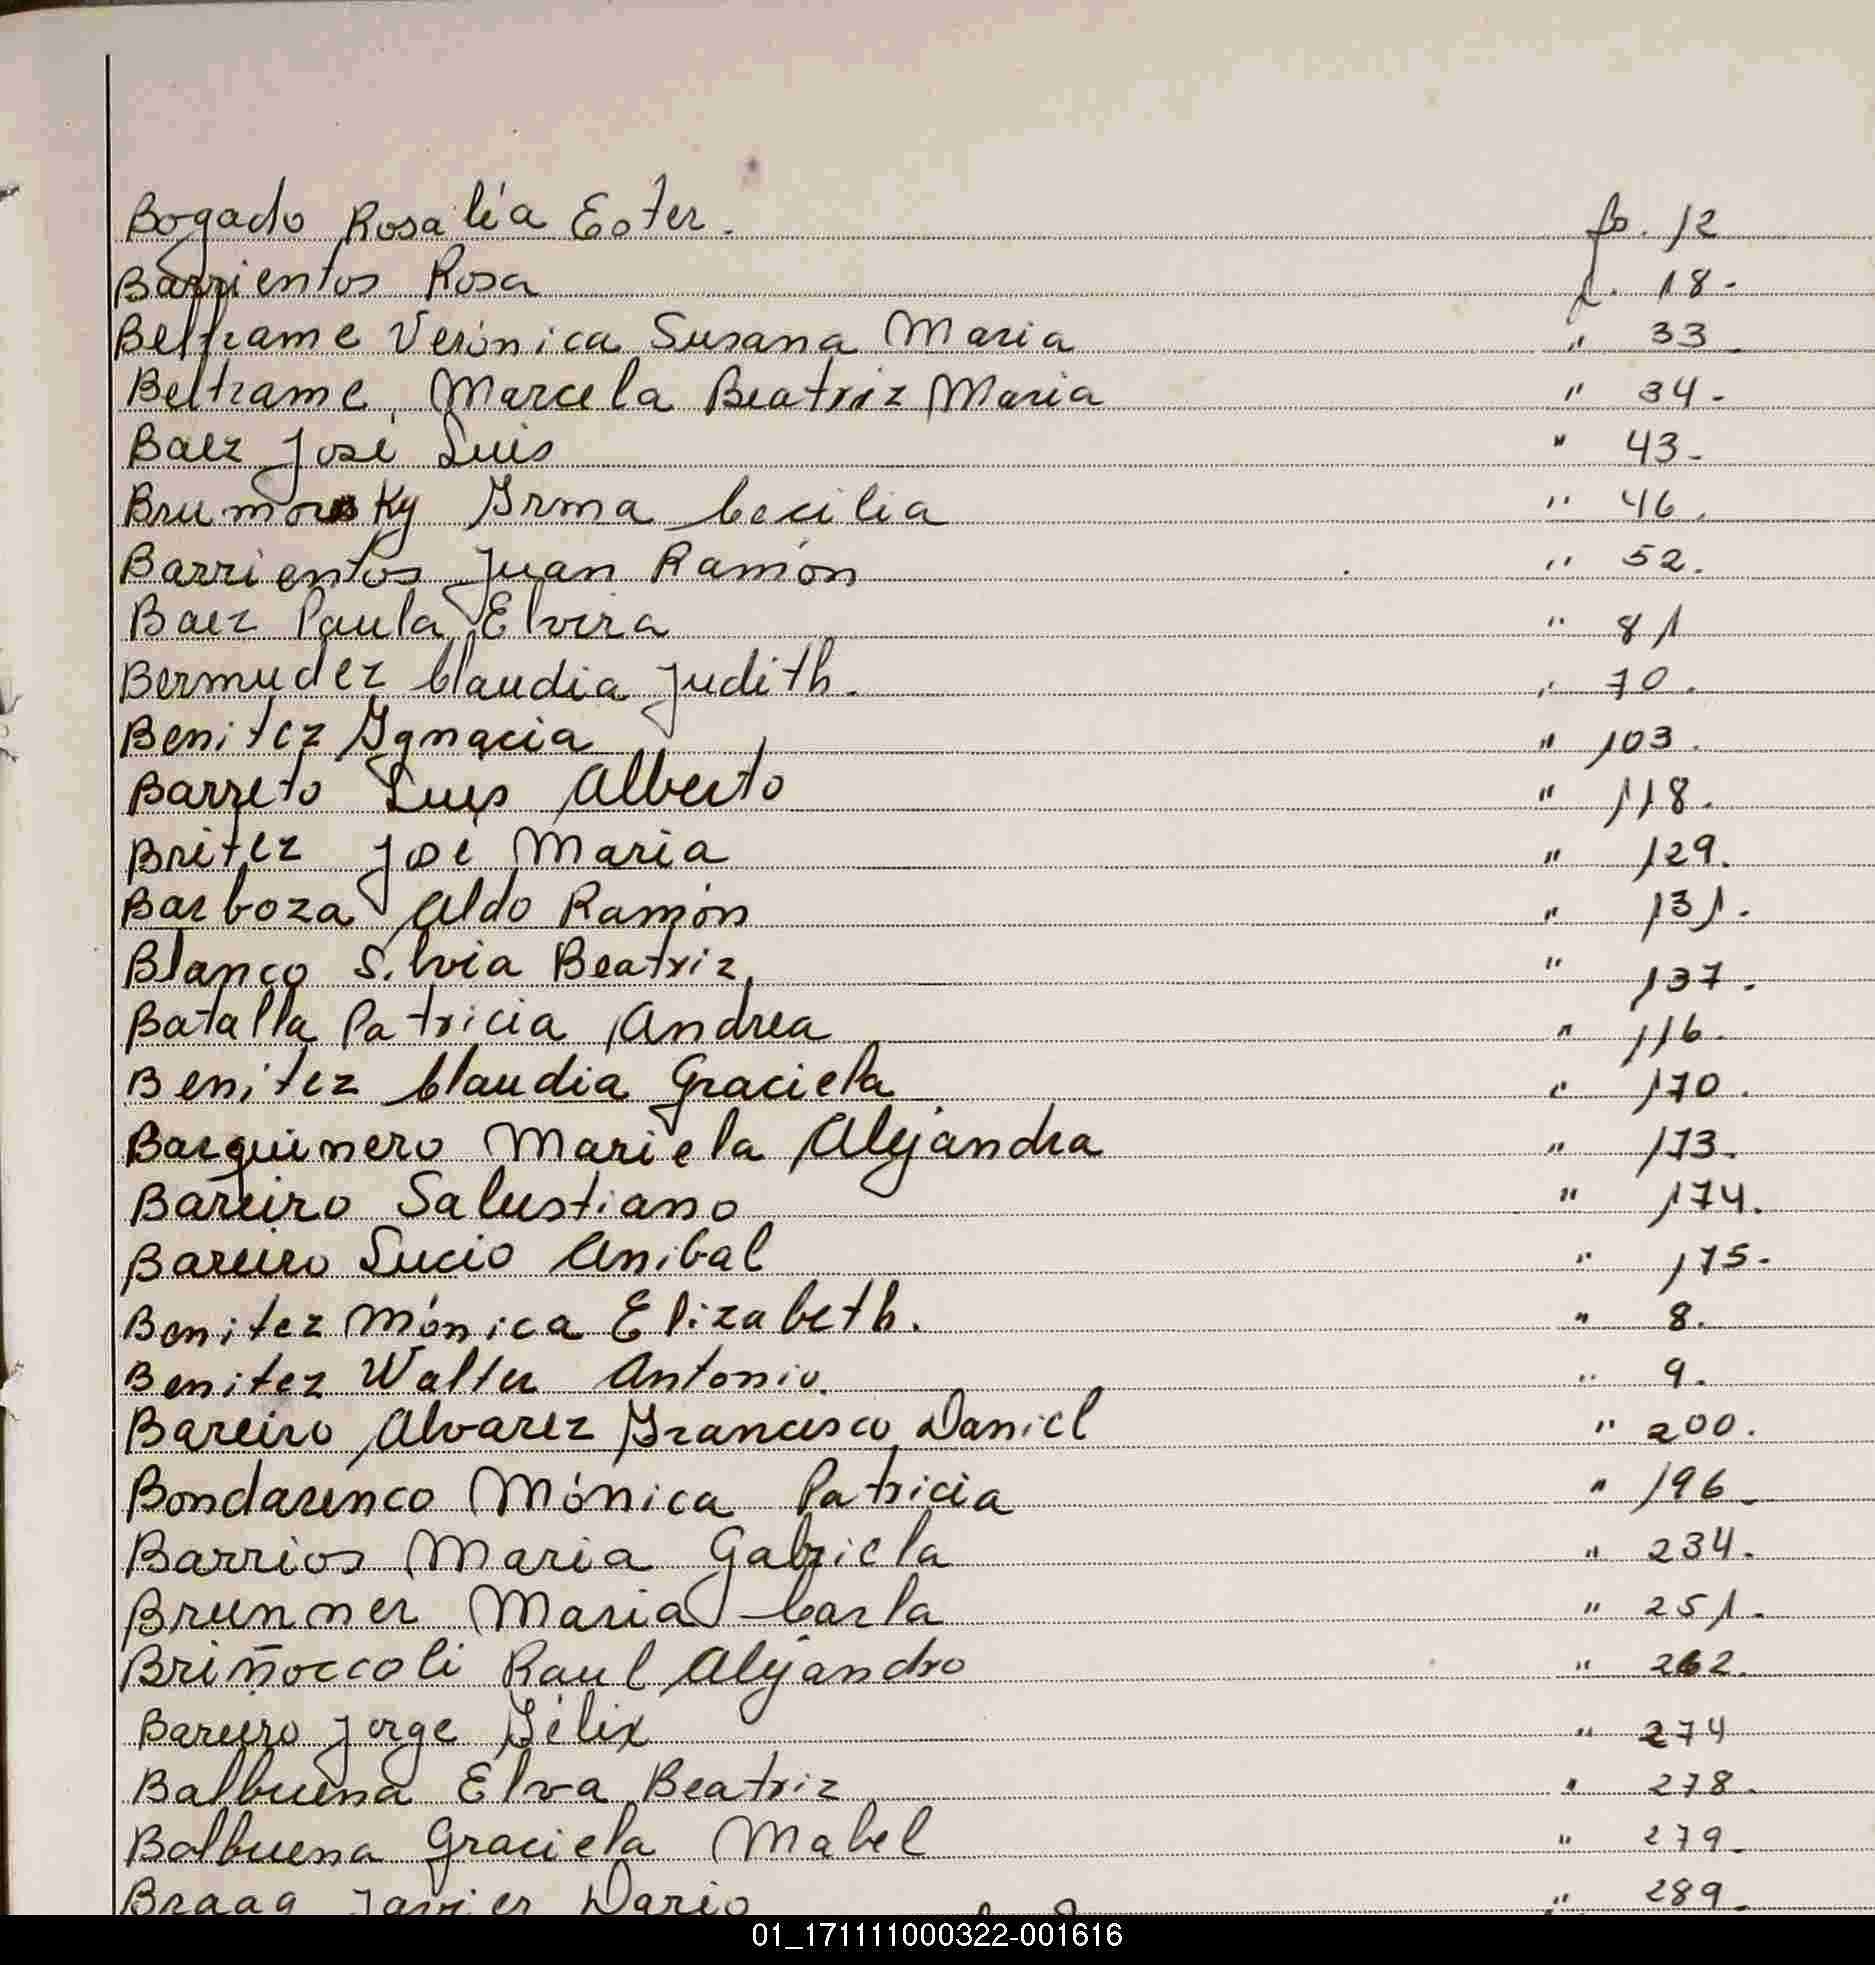 Bogado Rosalía Ester. fo. 12
Barrientos Rosa f. 18.
Beltrame Verónica Susana Maria " 33
Beltrame, Marcela Beatriz Maria " 34.
Baez José Luis " 43.
Irma Cecilia " 46.
Barrientos Juan Ramón " 52.
Baez Paula Elvira " 81
Bermudez Claudia Judith. " 70.
Benitez Ignacia " 103.
Barreto Luis Alberto " 118.
Britez José Maria " 129.
Barboza Aldo Ramón " 131.
Blanco Silvia Beatriz " 137.
Batalla Patricia Andrea " 116.
Benitez Claudia Graciela " 170.
Barquinero Mariela Alejandra " 173.
Bareiro Salustiano " 174.
Bareiro Lucio Anibal " 175.
Benitez Mónica Elizabeth. " 8.
Benitez Walter Antonio. " 9.
Bareiro Alvarez Francisco Daniel " 200.
Bondarenco Mónica Patricia " 196
Barrios Maria Gabriela " 234.
Brunner Maria Carla " 251.
Briñoccoli Raul Alejandro " 262.
Bareiro Jorge Félix " 274
Balbuena Elva Beatriz " 278.
Balbuena Graciela Mabel " 279.
Javier Dario " 289.
01_171111000322-001616